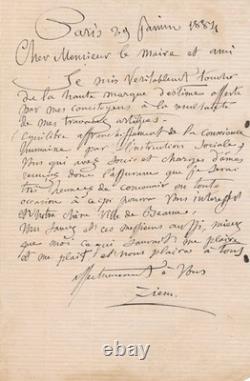 Paris 29 Janvier 1884
Cher Monsieur le Maire et ami
Je suis véritablement touché
de la haute marque d'estime offerte
par mes concitoyens à la
de mes travaux artistiques
de la Conscience
humaine, par l'instruction Sociale,
Vous qui avez Soucis et charges d'âmes
donc l'assurance que je serai
très heureux de concourir en toute
occasion à ce qui pourra vous intéresser
et Notre chère Ville de Beaune,
Vous Savez et ces Messieurs aussi, mieux
que moi ce qui saurait me plaire
me plait et nous plaira à tous
affectueusement à Vous
Ziem